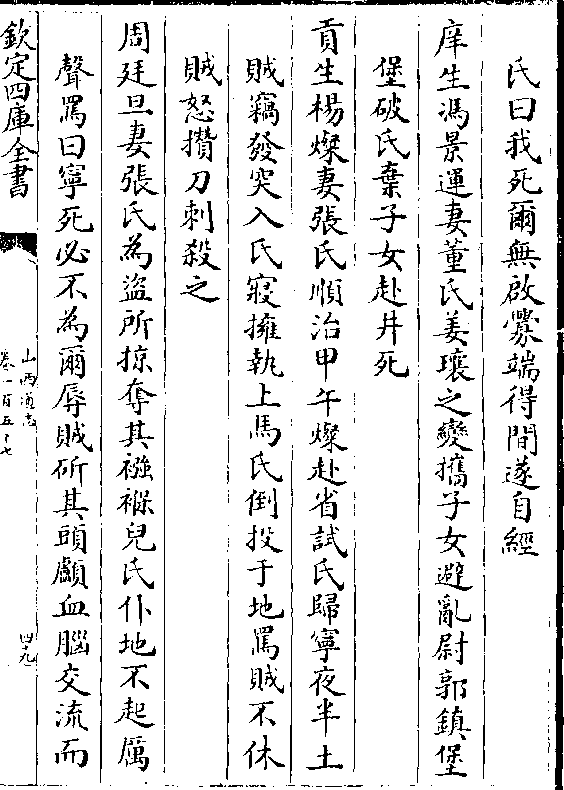 氏曰我死爾無啟釁端得間遂自經
庠生馮景運妻董氏姜瓖之變攜子女避亂尉郭鎮堡
堡破氏棄子女赴井死
貢生楊燦妻張氏順治甲午燦赴省試氏歸寧夜半土
賊竊發突入氏寢擁執上馬氏倒投于地罵賊不休
賊怒攢刀刺殺之
周廷旦妻張氏為盜所掠奪其襁褓兒氏仆地不起厲
聲罵曰寧死必不為爾辱賊斫其頭顱血腦交流而
欽定四庫全書
山西通志
卷一百五十七
四十九